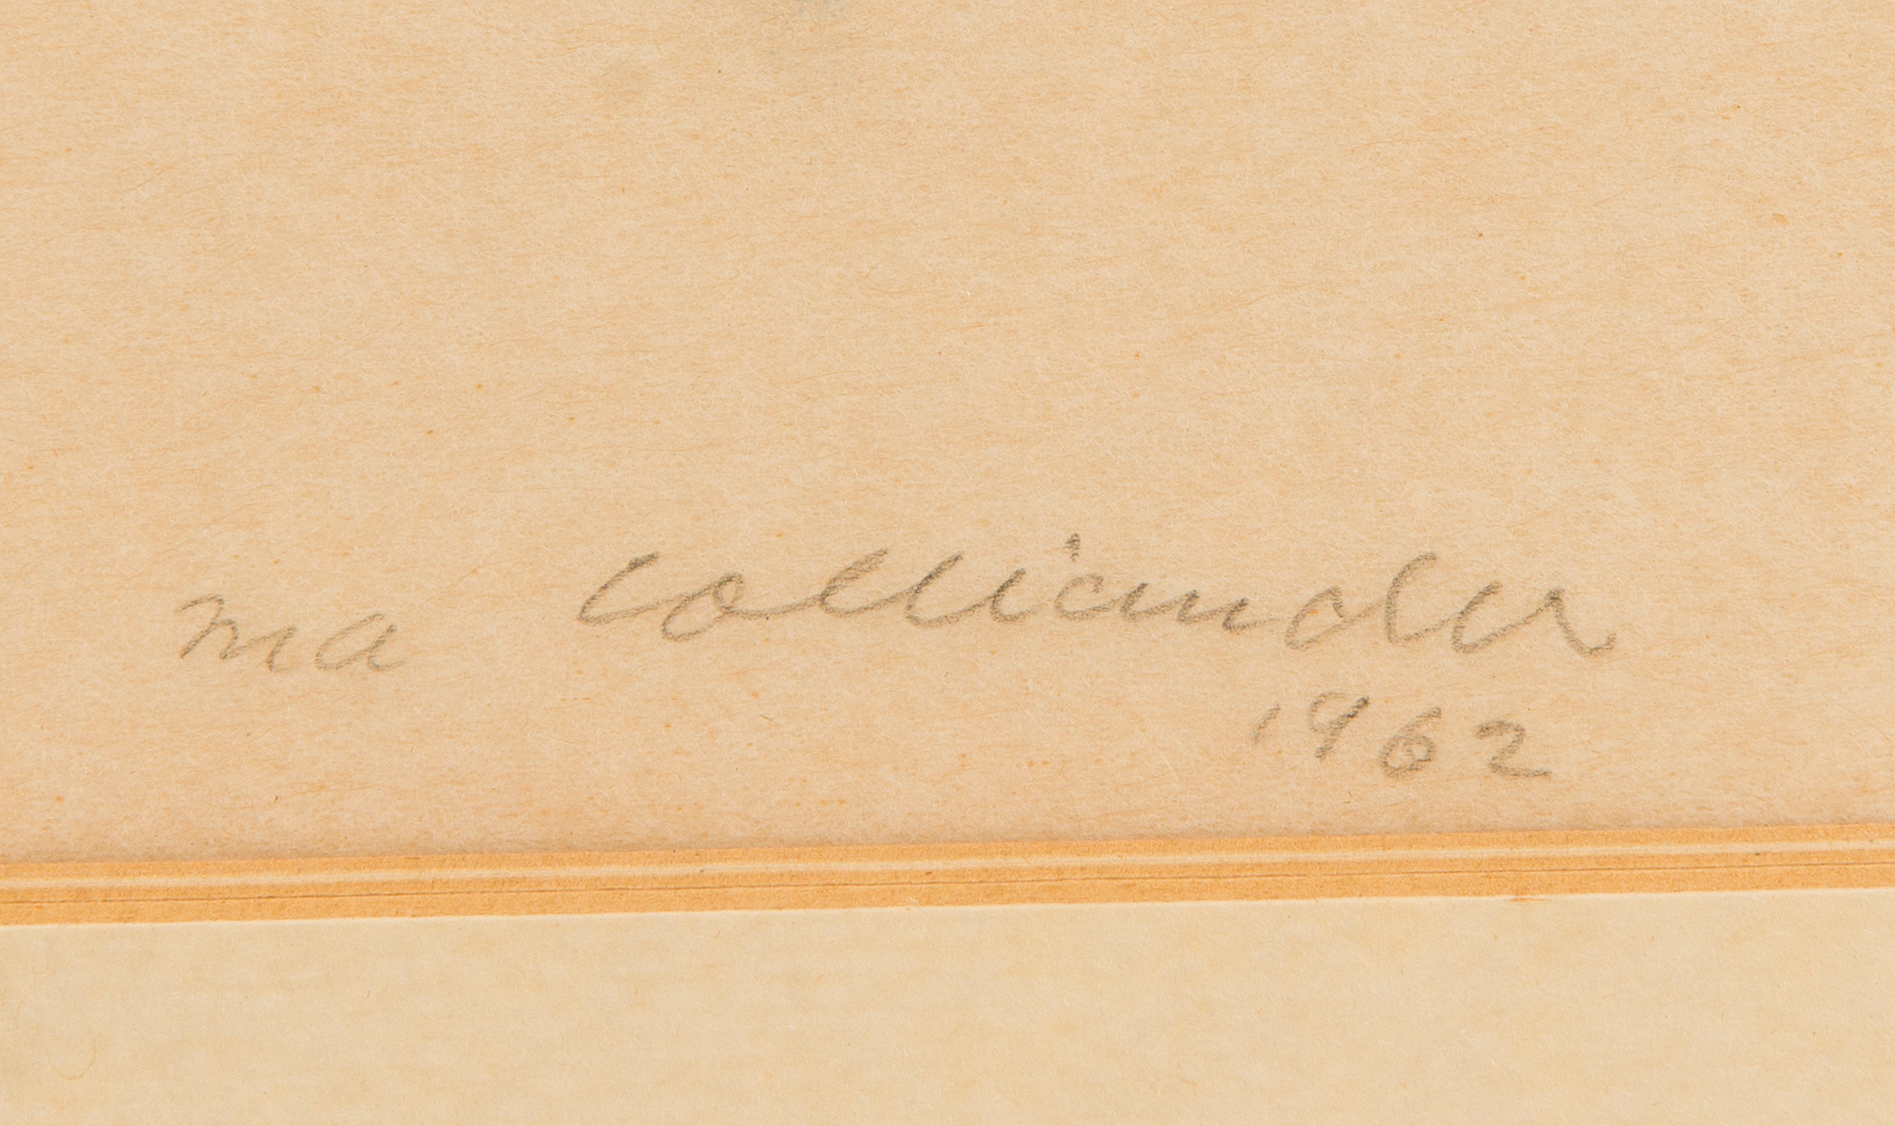 ma colliander
1962